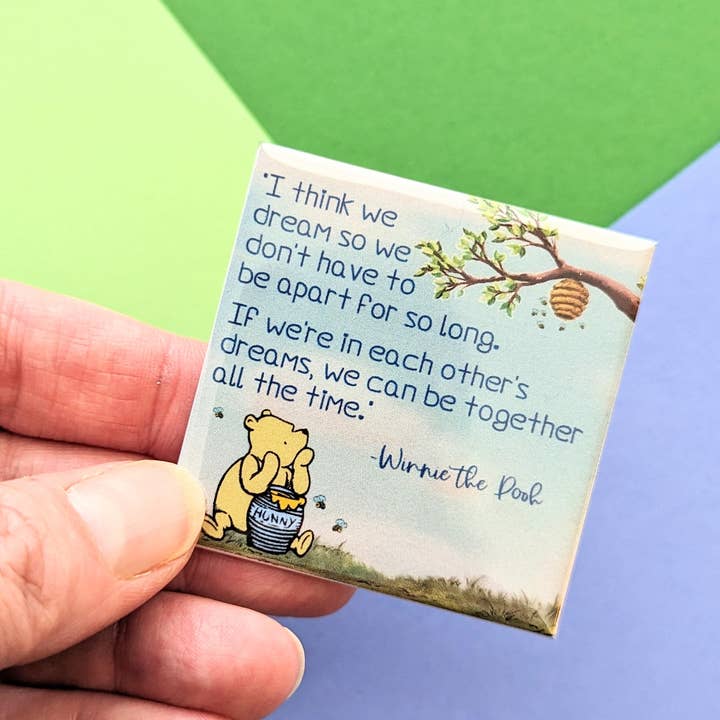 "I think we
dream so we
don't have to
be apart for so long.
If we're in each other's
dreams, we can be together
all the time."
-Winnie the Pooh
HUNNY